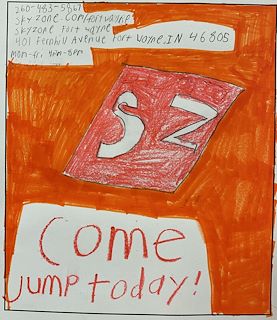 260-483-5867
skyzone.com/fortwayne
skyzone fort wayne
401 Fernhill Avenue Fort Wayne, IN 46805
mon-fri 4pm-8pm
SZ
Come
jump today!